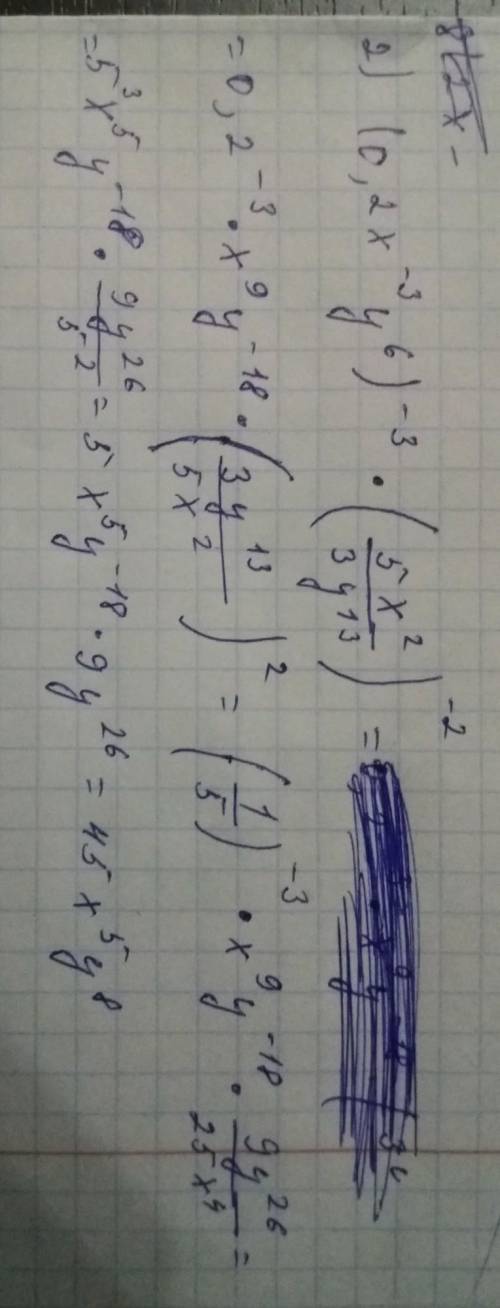 2) (0,2x^{-3}y^6)^{-3} · (5x^2/3y^{13})^{-2} =
= 0,2^{-3} · x^9y^{-18} · (3y^{13}/5x^2)^2 = (1/5)^{-3} · x^9y^{-18} · 9y^{26}/25x^4 =
= 5^3x^5y^{-18} · 9y^{26}/5^2 = 5x^5y^{-18} · 9y^{26} = 45x^5y^8